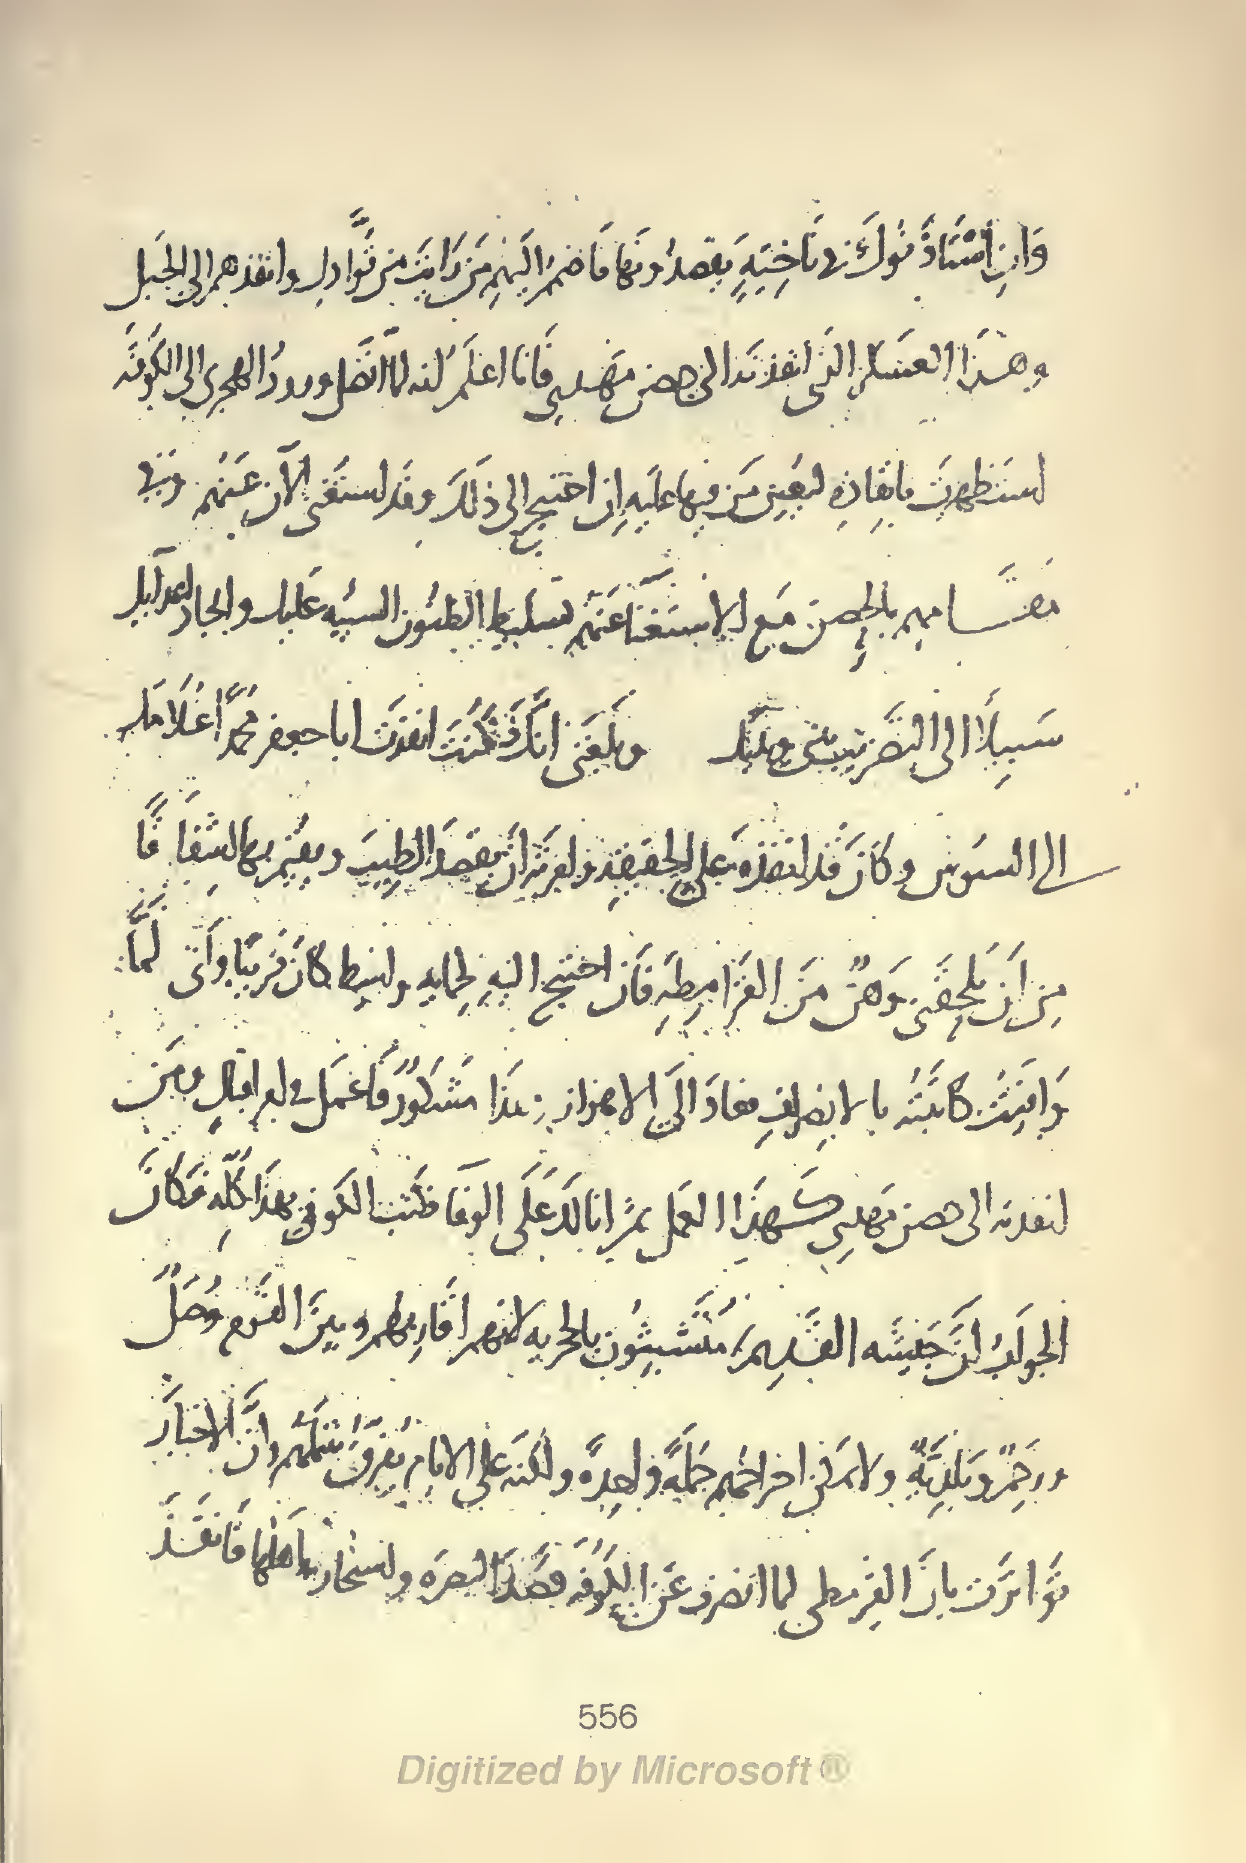 وان استاذ نوك في ناحية يقصدونها فاضمم اليهم من رايت من قوادك وانفذهم الى الجبل
وهذا العسكر الذي انفذته الى حصن مهدي فانا اعلم انه لما اتصل ورود الهجري الى الكوفة
استظهرت بانفاذه ليعين من فيها عليه ان احتيج الى ذلك وقد استغنى الآن عنهم وفي
مقامهم بالحصن مع الاستغناء عنهم تسليط الظنون السيئة عليك وايجاد لعدائك
سبيلا الى التضريب بيني وبينك وبلغني انك قد كنت انفذت ابا جعفر محمدا غلامك
الى السوس وكان قد انفذه على الحقيقة وامره ان يقصد الطيب ويقيم بها اشفاقا
من ان يلحقني وهن من القرامطة فان احتيج اليه لحماية واسط كان قريبا وأني لما
وافيت كاتبته بالانصراف فعاد الى الاهواز هذا مشكور فاعمل في امر اقبال ومن
انفذته الى حصن مهدي كهذا العمل ثم انا لك على الوفا فكتب الكوفي بهذا كله فكان
الجواب ان جيشه القديم متشبثون بالحرية لانهم اقاربهم وبين القوم وصل
ورحم وبلدية ولا يمكن اخراجهم جملة واحدة ولكنه على الايام يفرق شملهم وان الاخبار
تواترت بان القرمطي لما انصرف عن الكوفة قصد البصرة واستجار به اهلها فانفذ
556
Digitized by Microsoft ®